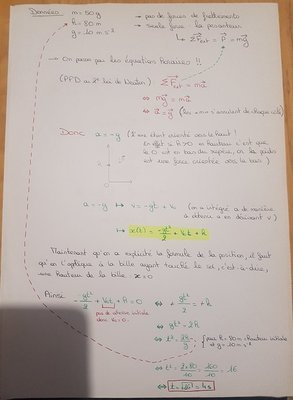 Données : m = 50 g → pas de forces de frottements
h = 80 m → seule force la pesanteur
g = 10 m.s⁻² ↳ ΣF⃗ext = P⃗ = mg⃗
→ On passe par les équations horaires !!
(PFD ou 2e loi de Newton) ΣF⃗ext = ma⃗
⇔ mg⃗ = ma⃗
⇔ a⃗ = g⃗ (les « m » s'annulent de chaque côté)
Donc a = -g (l'axe étant orienté vers le haut !
En effet si h > 0 en hauteur c'est que
le 0 est en bas du repère, or le poids
est une force orientée vers le bas)
a = -g ↦ v = -gt + V₀ (on a intégré, a de manière
à obtenir a en dérivant v)
↦ x(t) = -gt²/2 + V₀t + h
Maintenant qu'on a explicité la formule de la position, il faut
qu'on l'applique à la bille ayant touché le sol, c'est-à-dire,
une hauteur de la bille x = 0
Ainsi -gt²/2 + V₀t + h = 0 ⇔ gt²/2 = h
pas de vitesse initiale
donc V₀ = 0.
⇔ gt² = 2h
⇔ t² = 2h/g, pour h = 80m = hauteur initiale
et g = 10 m.s⁻²
⇔ t² = 2×80/10 = 160/10 = 16
⇔ t = √16 = 4s